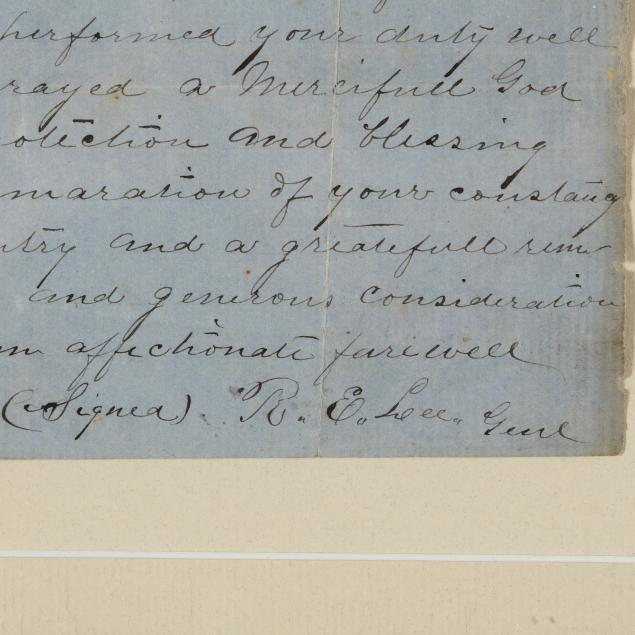 performed your duty well
rayed a Mercifull God
otection and blessing
maration of your constancy
ntry and a greatefull rem
and generous consideration
m affectionate farewell
(Signed). R. E. Lee. Genl